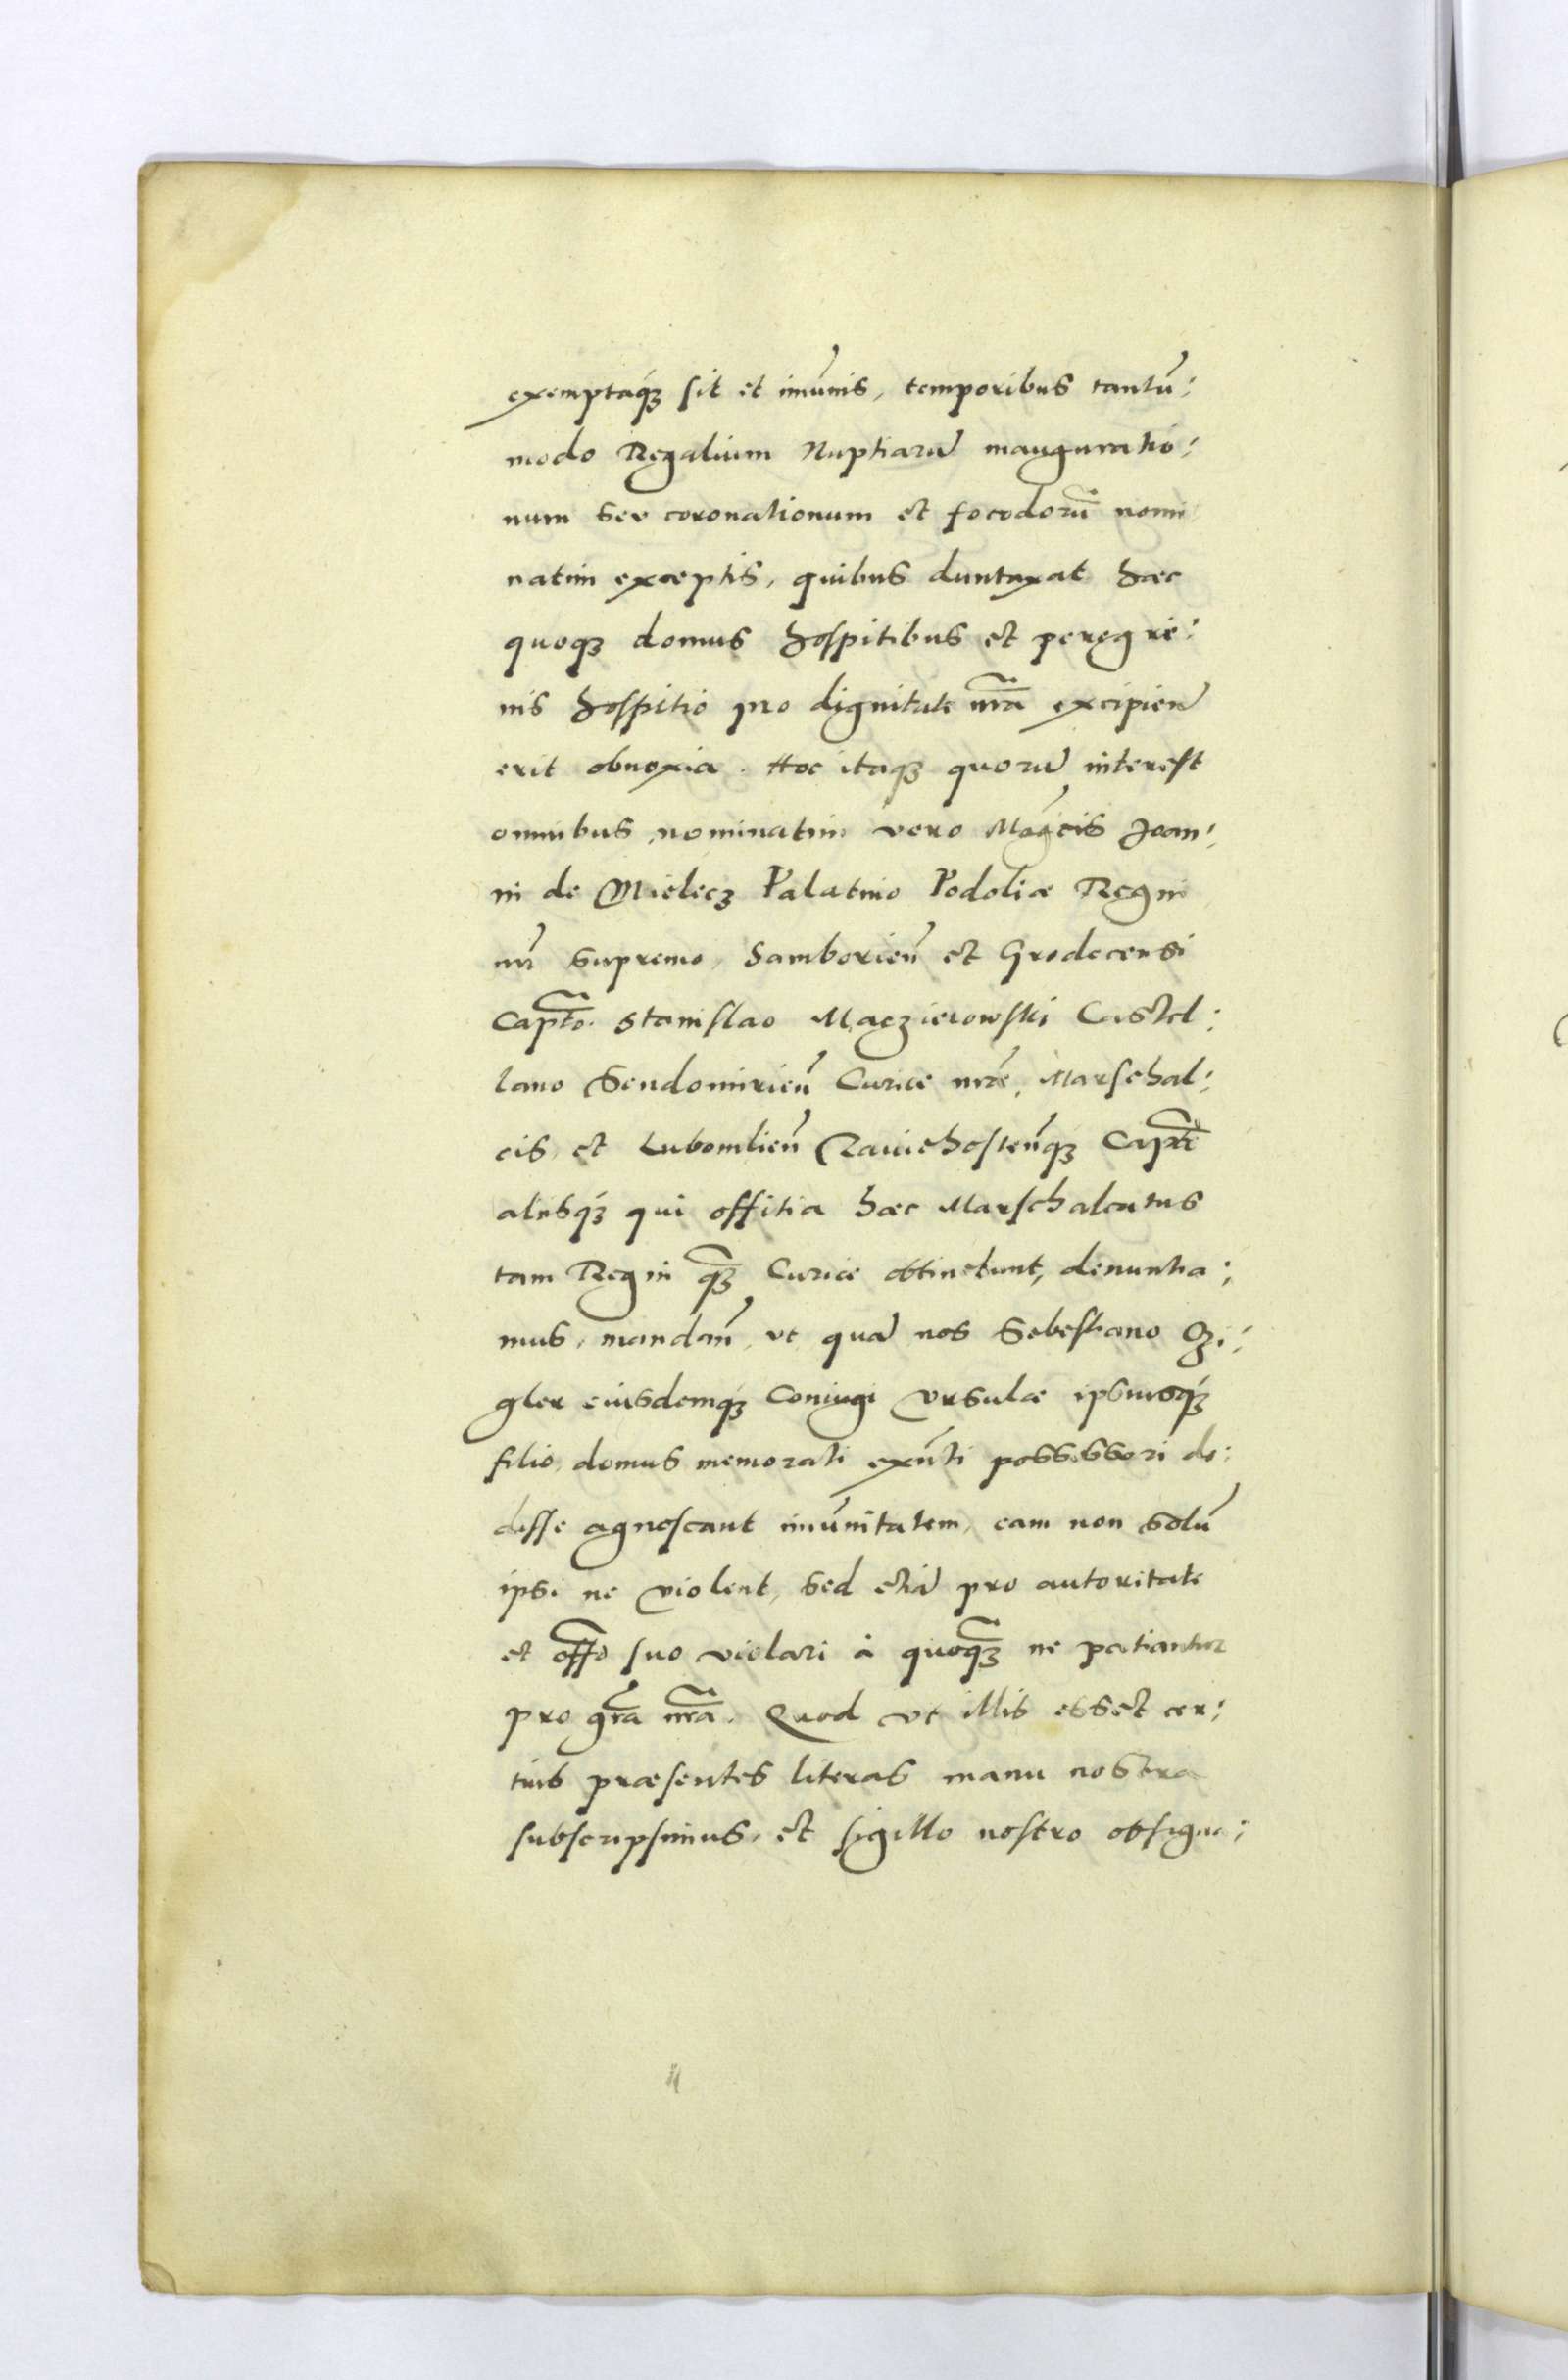 exemptaq́ꝫ sit et imūnis, temporibus tantū:
modo Regalium Nuptiarū inauguratio:
num seu coronationum et focodorū nomi
natim exceptis, quibus duntaxat haec
quoqꝫ domus hospitibus et peregri:
nis hospitio pro dignitate nr̃a excipien̄
erit obnoxia. Hoc itaqꝫ quorū interest
omnibus, nominatim vero Mag̃cis Joan:
ni de Mielecz Palatino Podoliæ Regni
nr̃i supremo, Samborien̄ et Grodecensi
Capt̃o. Stanislao Maczieiowski Castel:
lano Sendomirien̄ Curiæ nr̃æ, Marschal:
cis, et Lubomlien̄ Zavichosten̄qꝫ Capt̃o
aliisq́ꝫ qui offitia haec Marschalcatus
tam Regni q̃ꝫ Curiæ obtinebunt, denuntia:
mus, mandam̄, ut quā nos Sebestiano Czi:
gler eiusdemq́ꝫ Coniugi Vrsulæ ipsiusq́ꝫ
filio, domus memorati exn̄ti possessori de:
disse agnoscant imūnitatem, eam non solū
ipsi ne violent, sed etiā pro autoritate
et off̃o suo violari à quoq̃ꝫ ne patiantur
pro gr̃a nr̃a. Quod ut illis esset cer:
tius præsentes literas manu nostra
subscripsimus, et sigillo nostro obsigna: